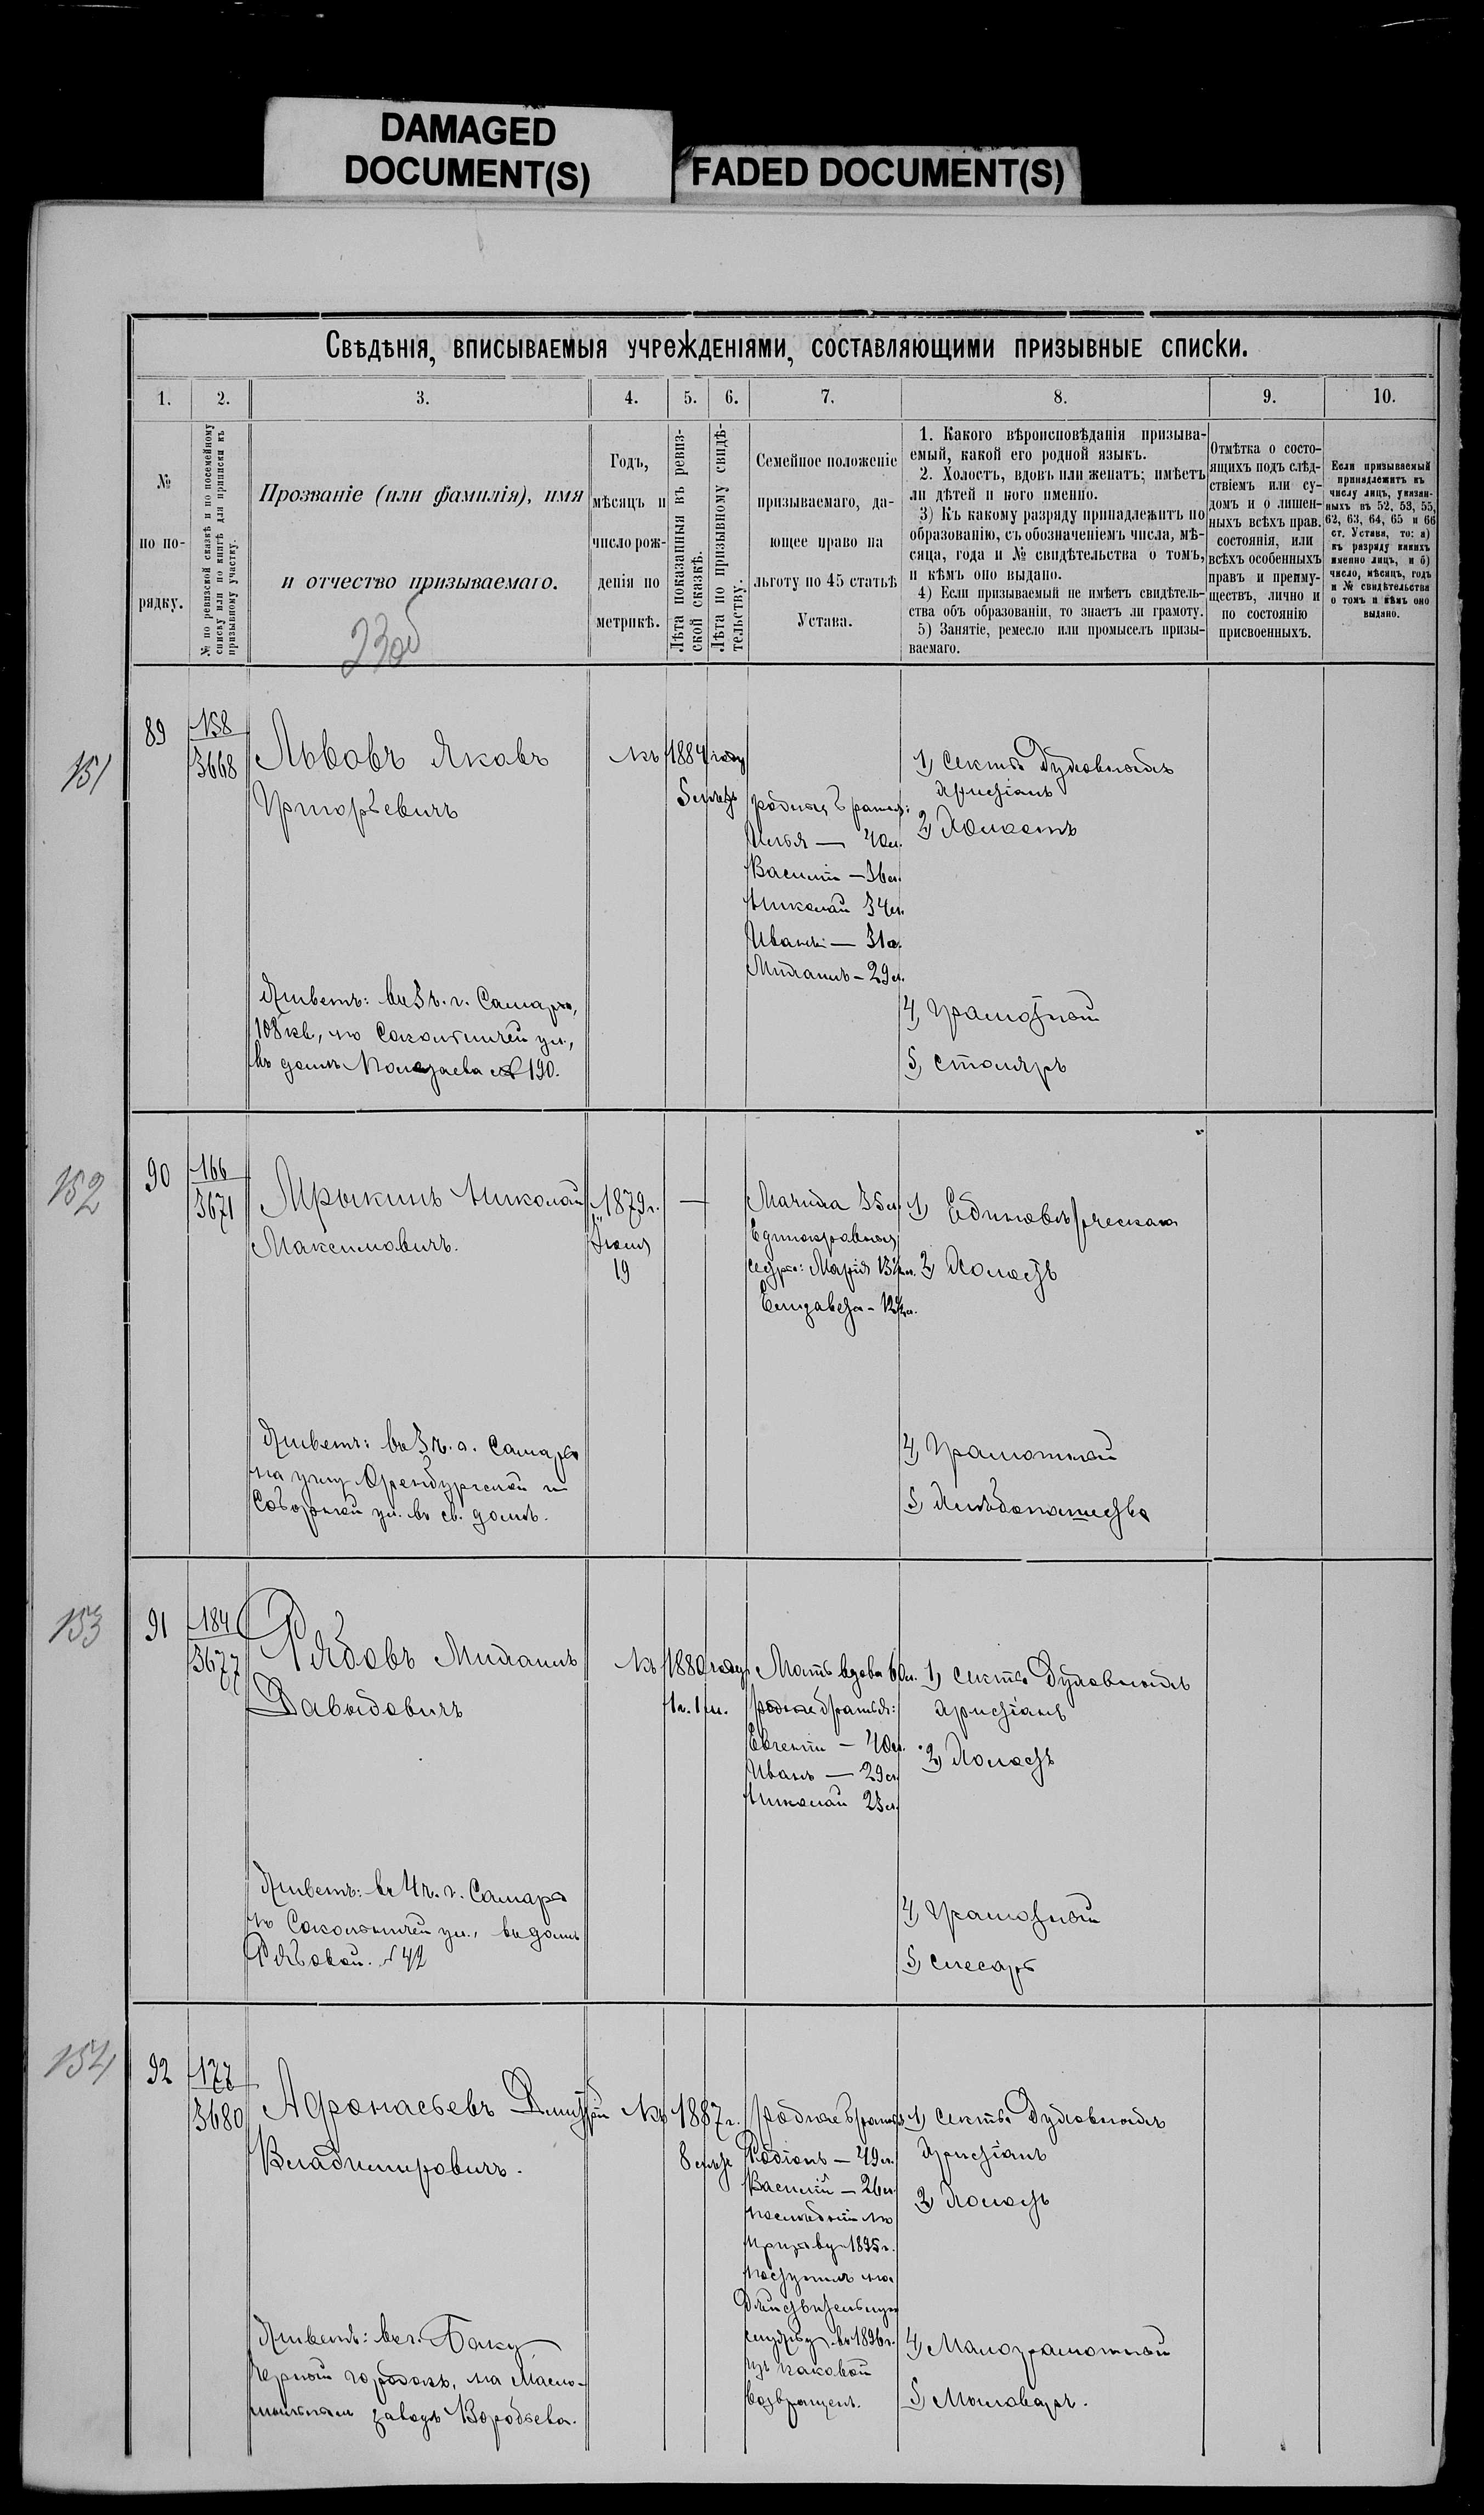 DAMAGED
DOCUMENT(S)
FADED DOCUMENT(S)
Свѣдѣнія, вписываемыя учрежденіями, составляющими призывные списки.
1. 2. 3. 4. 5. 6. 7. 8. 9. 10.
№
по по-
рядку.
№ по ревизской сказкѣ и по посемейному
списку или по книгѣ для приписки къ
призывному участку.
Прозваніе (или фамилія), имя
и отчество призываемаго.
230
Годъ,
мѣсяцъ и
число рож-
денія по
метрикѣ.
Лѣта показанныя въ ревиз-
ской сказкѣ.
Лѣта по призывному свидѣ-
тельству.
Семейное положеніе
призываемаго, да-
ющее право на
льготу по 45 статьѣ
Устава.
1. Какого вѣроисповѣданія призыва-
емый, какой его родной языкъ.
2. Холостъ, вдовъ или женатъ; имѣетъ
ли дѣтей и кого именно.
3) Къ какому разряду принадлежитъ по
образованію, съ обозначеніемъ числа, мѣ-
сяца, года и № свидѣтельства о томъ,
и кѣмъ оно выдано.
4) Если призываемый не имѣетъ свидѣтель-
ства объ образованіи, то знаетъ ли грамоту.
5) Занятіе, ремесло или промыселъ призы-
ваемаго.
Отмѣтка о состо-
ящихъ подъ слѣд-
ствіемъ или су-
домъ и о лишен-
ныхъ всѣхъ прав.
состоянія, или
всѣхъ особенныхъ
правъ и преиму-
ществъ, лично и
по состоянію
присвоенныхъ.
Если призываемый
принадлежитъ къ
числу лицъ, указан-
ныхъ въ 52, 53, 55,
62, 63, 64, 65 и 66
ст. Устава, то: а)
къ разряду какихъ
именно лицъ, и б)
число, мѣсяцъ, годъ
и № свидѣтельства
о томъ и кѣмъ оно
выдано.
151
89
158
3668
Львовъ Яковъ
Григорьевичъ
Живетъ: въ 3 ч. г. Самары,
108 кв., по Сокольничей ул.,
въ домѣ № 190.
Къ 1884 году
5 мѣсяц
родныя братья:
Илья — 40 л.
Василій — 36 л.
Николай 34 л.
Иванъ — 31 л.
Михаилъ — 29 л.
1) Секты Духовныхъ
христіанъ
2) Холостъ
4) Грамотный
5) Столяръ
152
90
166
3671
Мрыкинъ Николай
Максимовичъ.
Живетъ: въ 3 ч. г. Самары
на углу Оренбургской и
Соборной ул. въ св. домѣ.
1879 г.
Іюня
19
—
Мачиха 35 л.
Единокровныя
сестры: Марія 13½ л.
Елизавета — 12½ л.
1) Единовѣрческаго
2) Холостъ
4) Грамотный
5) Хлѣбопашество
153
91
184
3677
Рябовъ Михаилъ
Давыдовичъ
Живетъ: въ 4 ч. г. Самары
по Сокольничей ул., въ домѣ
Рябовой. № 42
Къ 1880 году
1 г. 1 м.
Мать вдова 60 л.
родные братья:
Евгеній — 40 л.
Иванъ — 29 л.
Николай 23 л.
1) Секты Духовныхъ
христіанъ
2) Холостъ
4) Грамотный
5) слесарь
154
92
177
3680
Афонасьевъ Дмитрій
Владимировичъ.
Живетъ: въ г. Баку
Черный городокъ, на Масло-
заводѣ Воробьева.
Къ 1887 г.
8 мѣсяц
родные братья
Родіонъ — 49 л.
Василій — 26 л.
послѣдній по
призыву 1895 г.
поступилъ на
дѣйствительную
службу въ 1896 г.
изъ каковой
возвращенъ.
1) Секты Духовныхъ
Христіанъ
2) Холостъ
4) Малограмотный
5) Мыловаръ.